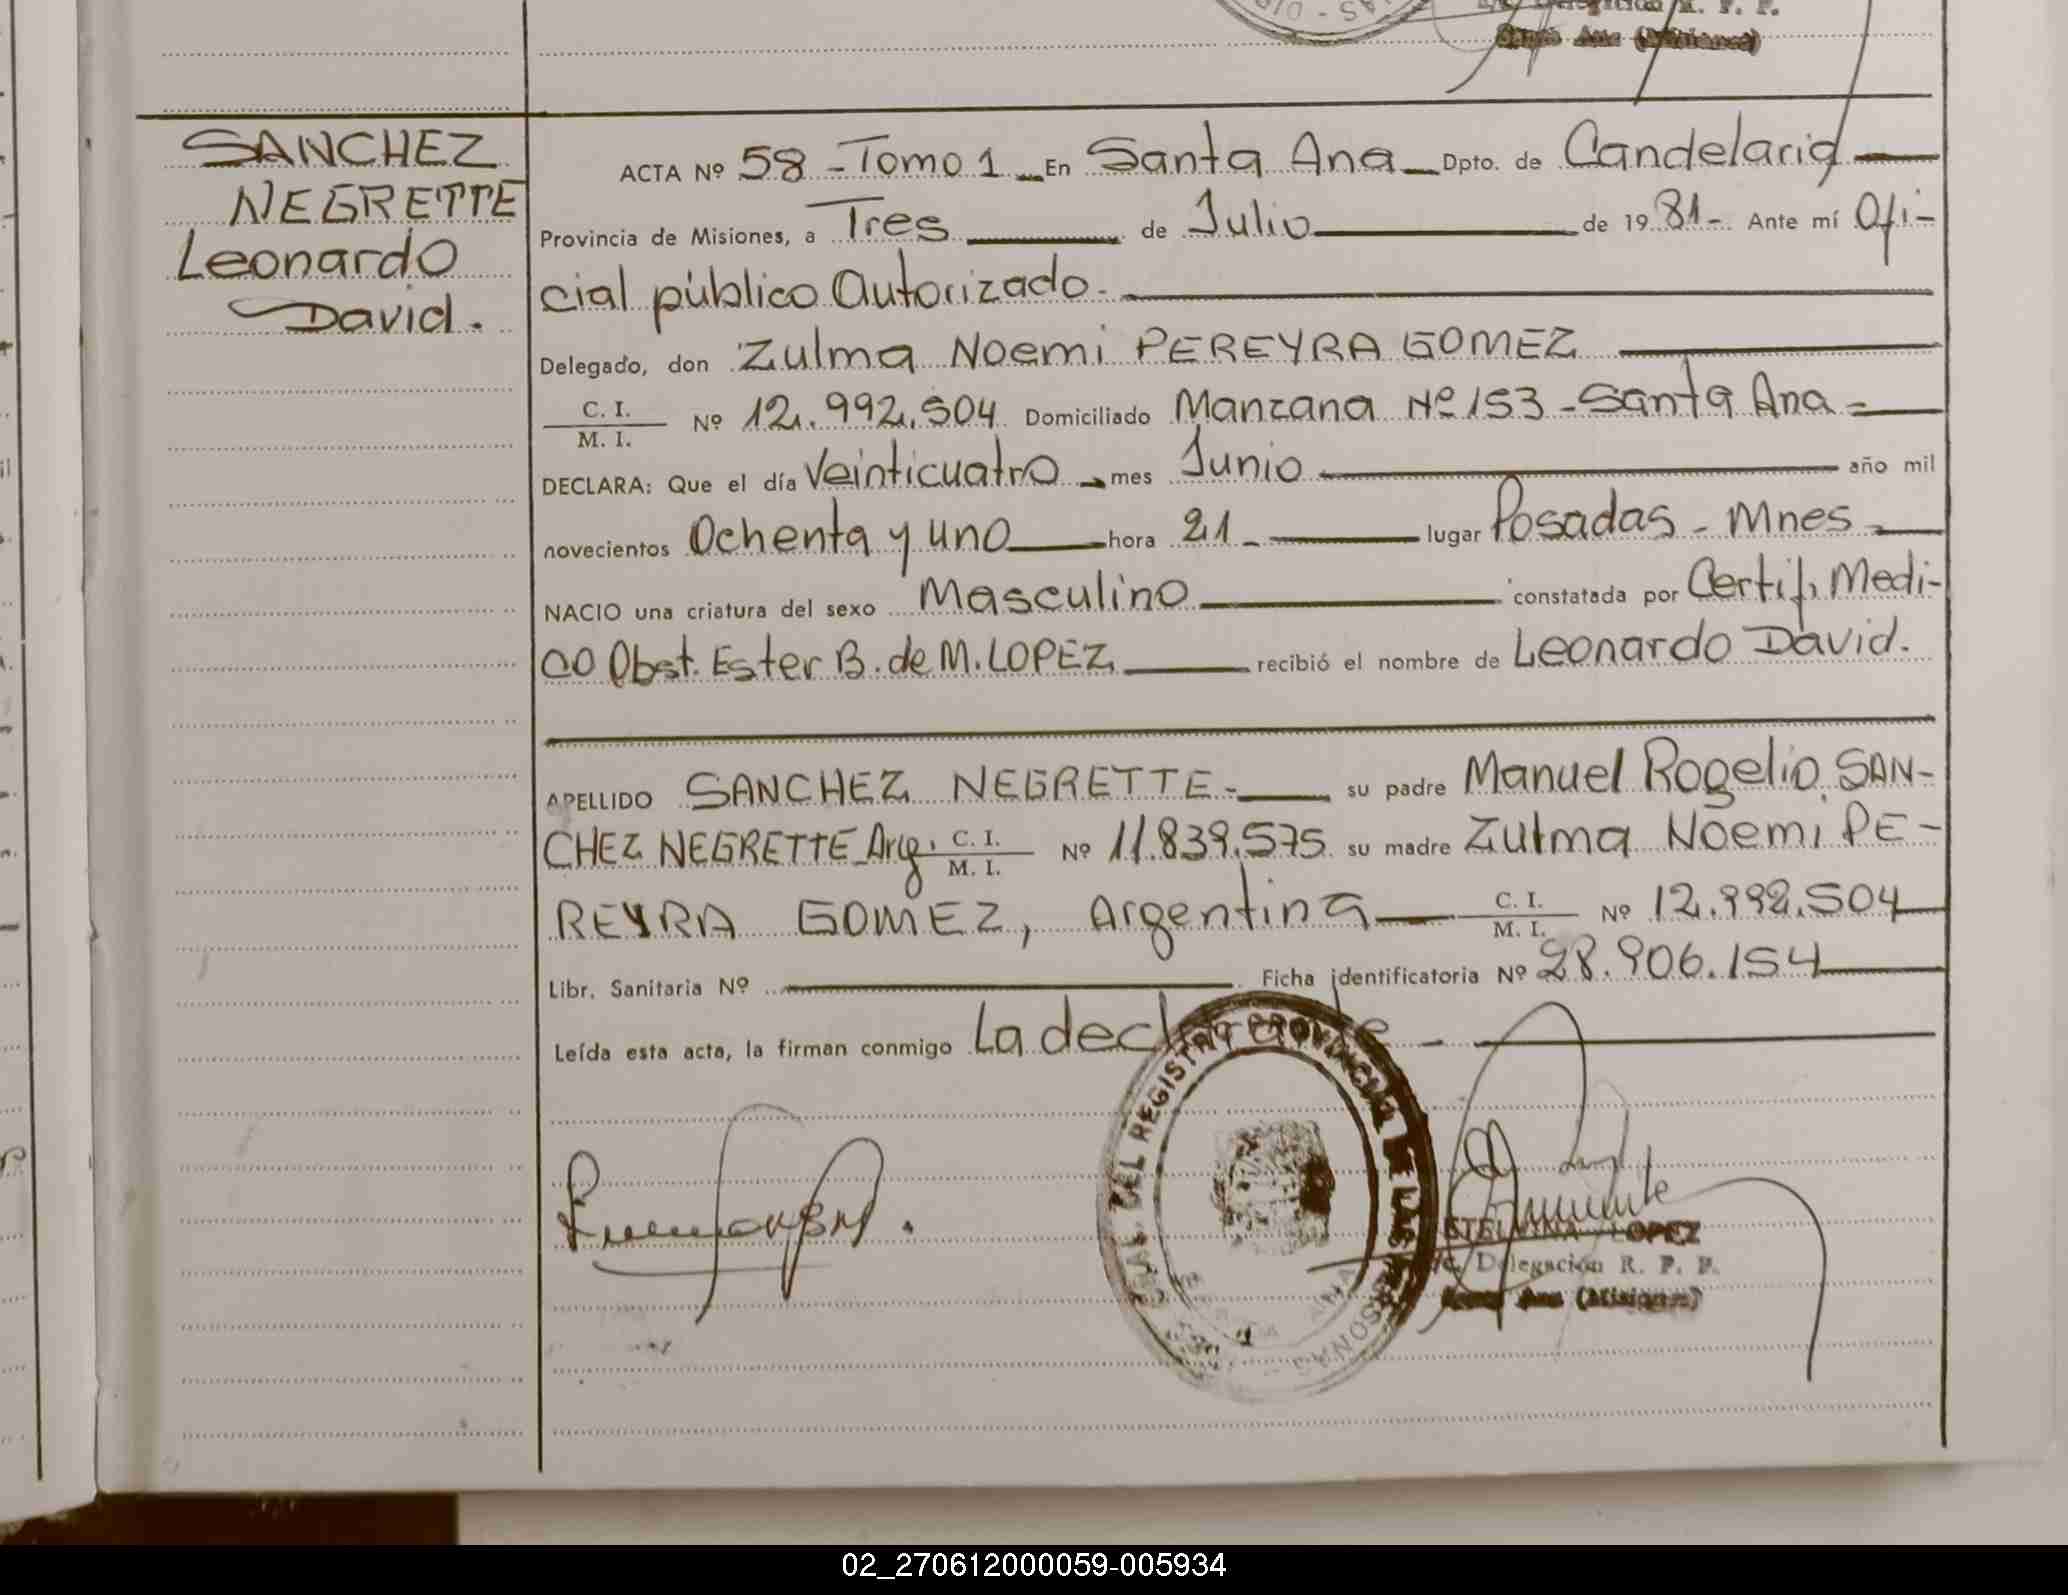 Delegación R. P. P.
Santa Ana (Misiones)
SANCHEZ
NEGRETTE
Leonardo
David.
ACTA Nº 58 - Tomo 1 - En Santa Ana - Dpto. de Candelaria
Provincia de Misiones, a Tres de Julio de 1981 - Ante mí Ofi-
cial público Autorizado.
Delegado, don Zulma Noemi PEREYRA GOMEZ
C. I.
M. I. Nº 12.992.504 Domiciliado Manzana Nº 153 - Santa Ana -
DECLARA: Que el día Veinticuatro - mes Junio año mil
novecientos Ochenta y uno hora 21 - lugar Posadas - Mnes -
NACIO una criatura del sexo Masculino constatada por Certif. Medi-
co Obst. Ester B. de M. LOPEZ recibió el nombre de Leonardo David.
APELLIDO SANCHEZ NEGRETTE - su padre Manuel Rogelio SAN-
CHEZ NEGRETTE Arg. C. I.
M. I. Nº 11.839.575 su madre Zulma Noemi PE-
REYRA GOMEZ, Argentina C. I.
M. I. Nº 12.992.504
Libr. Sanitaria Nº Ficha identificatoria Nº 28.906.154
Leída esta acta, la firman conmigo La declarante -
DEL REGISTRO PROVINCIAL DE LAS PERSONAS
STELVINA LOPEZ
Delegación R. P. P.
Santa Ana (Misiones)
02_270612000059-005934